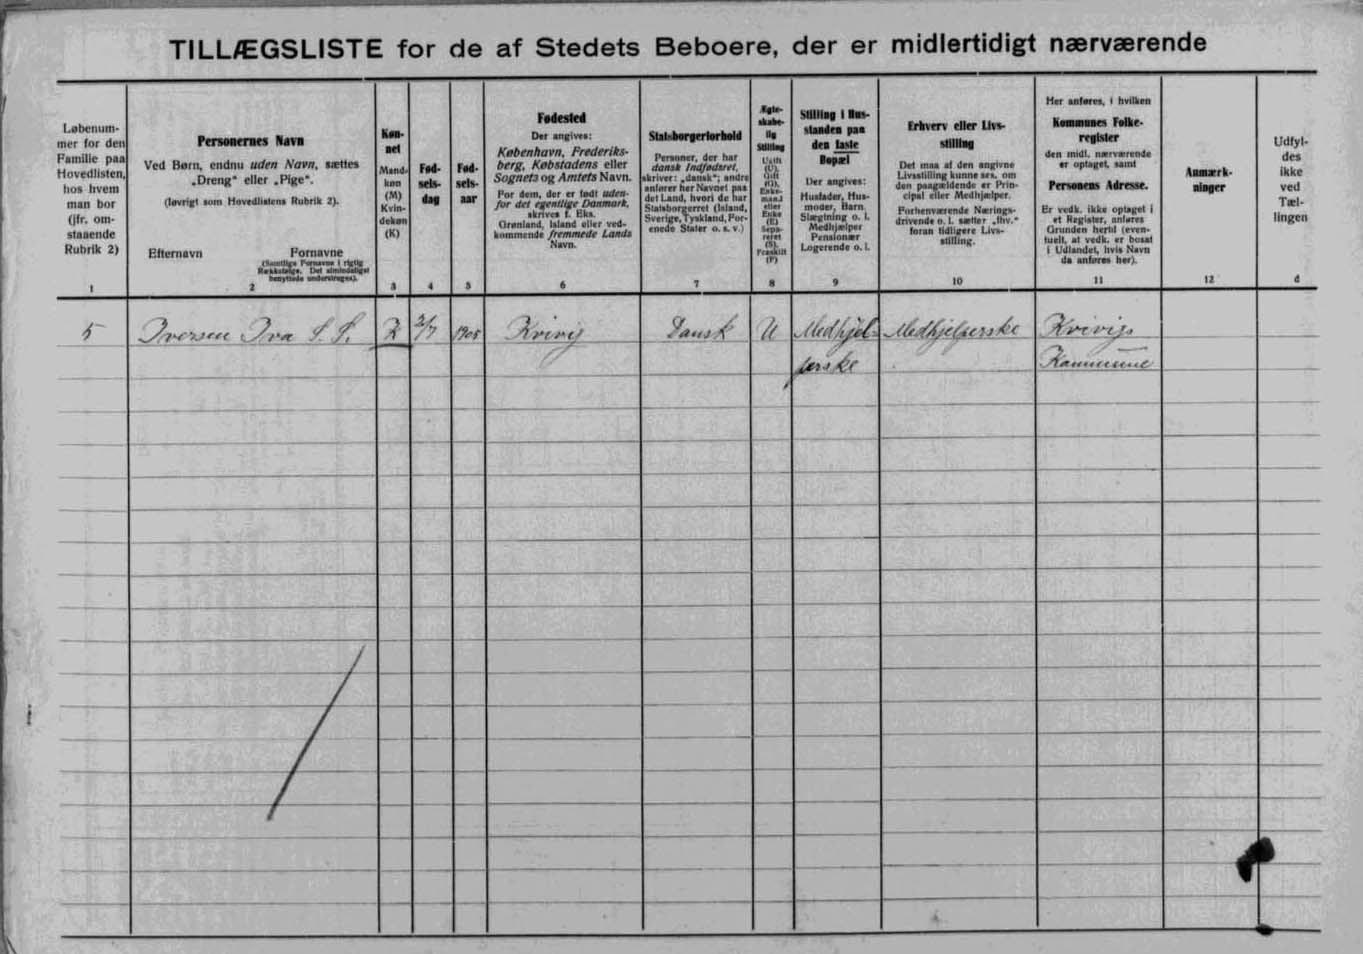 TILLÆGSLISTE for de af Stedets Beboere, der er midlertidigt nærværende
Løbenum-
mer for den
Familie paa
Hovedlisten,
hos hvem
man bor
(jfr. om-
staaende
Rubrik 2)
1
Personernes Navn
Ved Børn, endnu uden Navn, sættes
„Dreng“ eller „Pige“.
(Iøvrigt som Hovedlistens Rubrik 2).
Efternavn Fornavne
(Samtlige Fornavne i rigtig
Rækkefølge. Det almindeligst
benyttede understreges).
2
Køn-
net
Mand-
køn
(M)
Kvin-
dekøn
(K)
3
Fød-
sels-
dag
4
Fød-
sels-
aar
5
Fødested
Der angives:
København, Frederiks-
berg, Købstadens eller
Sognets og Amtets Navn.
For dem, der er født uden-
for det egentlige Danmark,
skrives f. Eks.
Grønland, Island eller ved-
kommende fremmede Lands
Navn.
6
Statsborgerforhold
Personer, der har
dansk Indfødsret,
skriver: „dansk“; andre
anfører her Navnet paa
det Land, hvori de har
Statsborgerret (Island,
Sverige, Tyskland, For-
enede Stater o. s. v.)
7
Ægte-
skabe-
lig
Stilling
Ugift
(U),
Gift
(G),
Enke-
mand
eller
Enke
(E)
Sepa-
reret
(S),
Fraskilt
(F)
8
Stilling i Hus-
standen paa
den faste
Bopæl
Der angives:
Husfader, Hus-
moder, Barn,
Slægtning o. l.
Medhjælper
Pensionær
Logerende o. l.
9
Erhverv eller Livs-
stilling
Det maa af den angivne
Livsstilling kunne ses, om
den paagældende er Prin-
cipal eller Medhjælper.
Forhenværende Nærings-
drivende o. l. sætter „fhv.“
foran tidligere Livs-
stilling.
10
Her anføres, i hvilken
Kommunes Folke-
register
den midl. nærværende
er optaget, samt
Personens Adresse.
Er vedk. ikke optaget i
et Register, anføres
Grunden hertil (even-
tuelt, at vedk. er bosat
i Udlandet, hvis Navn
da anføres her).
11
Anmærk-
ninger
12
Udfyl-
des
ikke
ved
Tæl-
lingen
d
5 Iversen Iva S. S. K 2/7 1905 Kvivig Dansk U Medhjel- Medhjelperske Kvivigs
perske Kommune